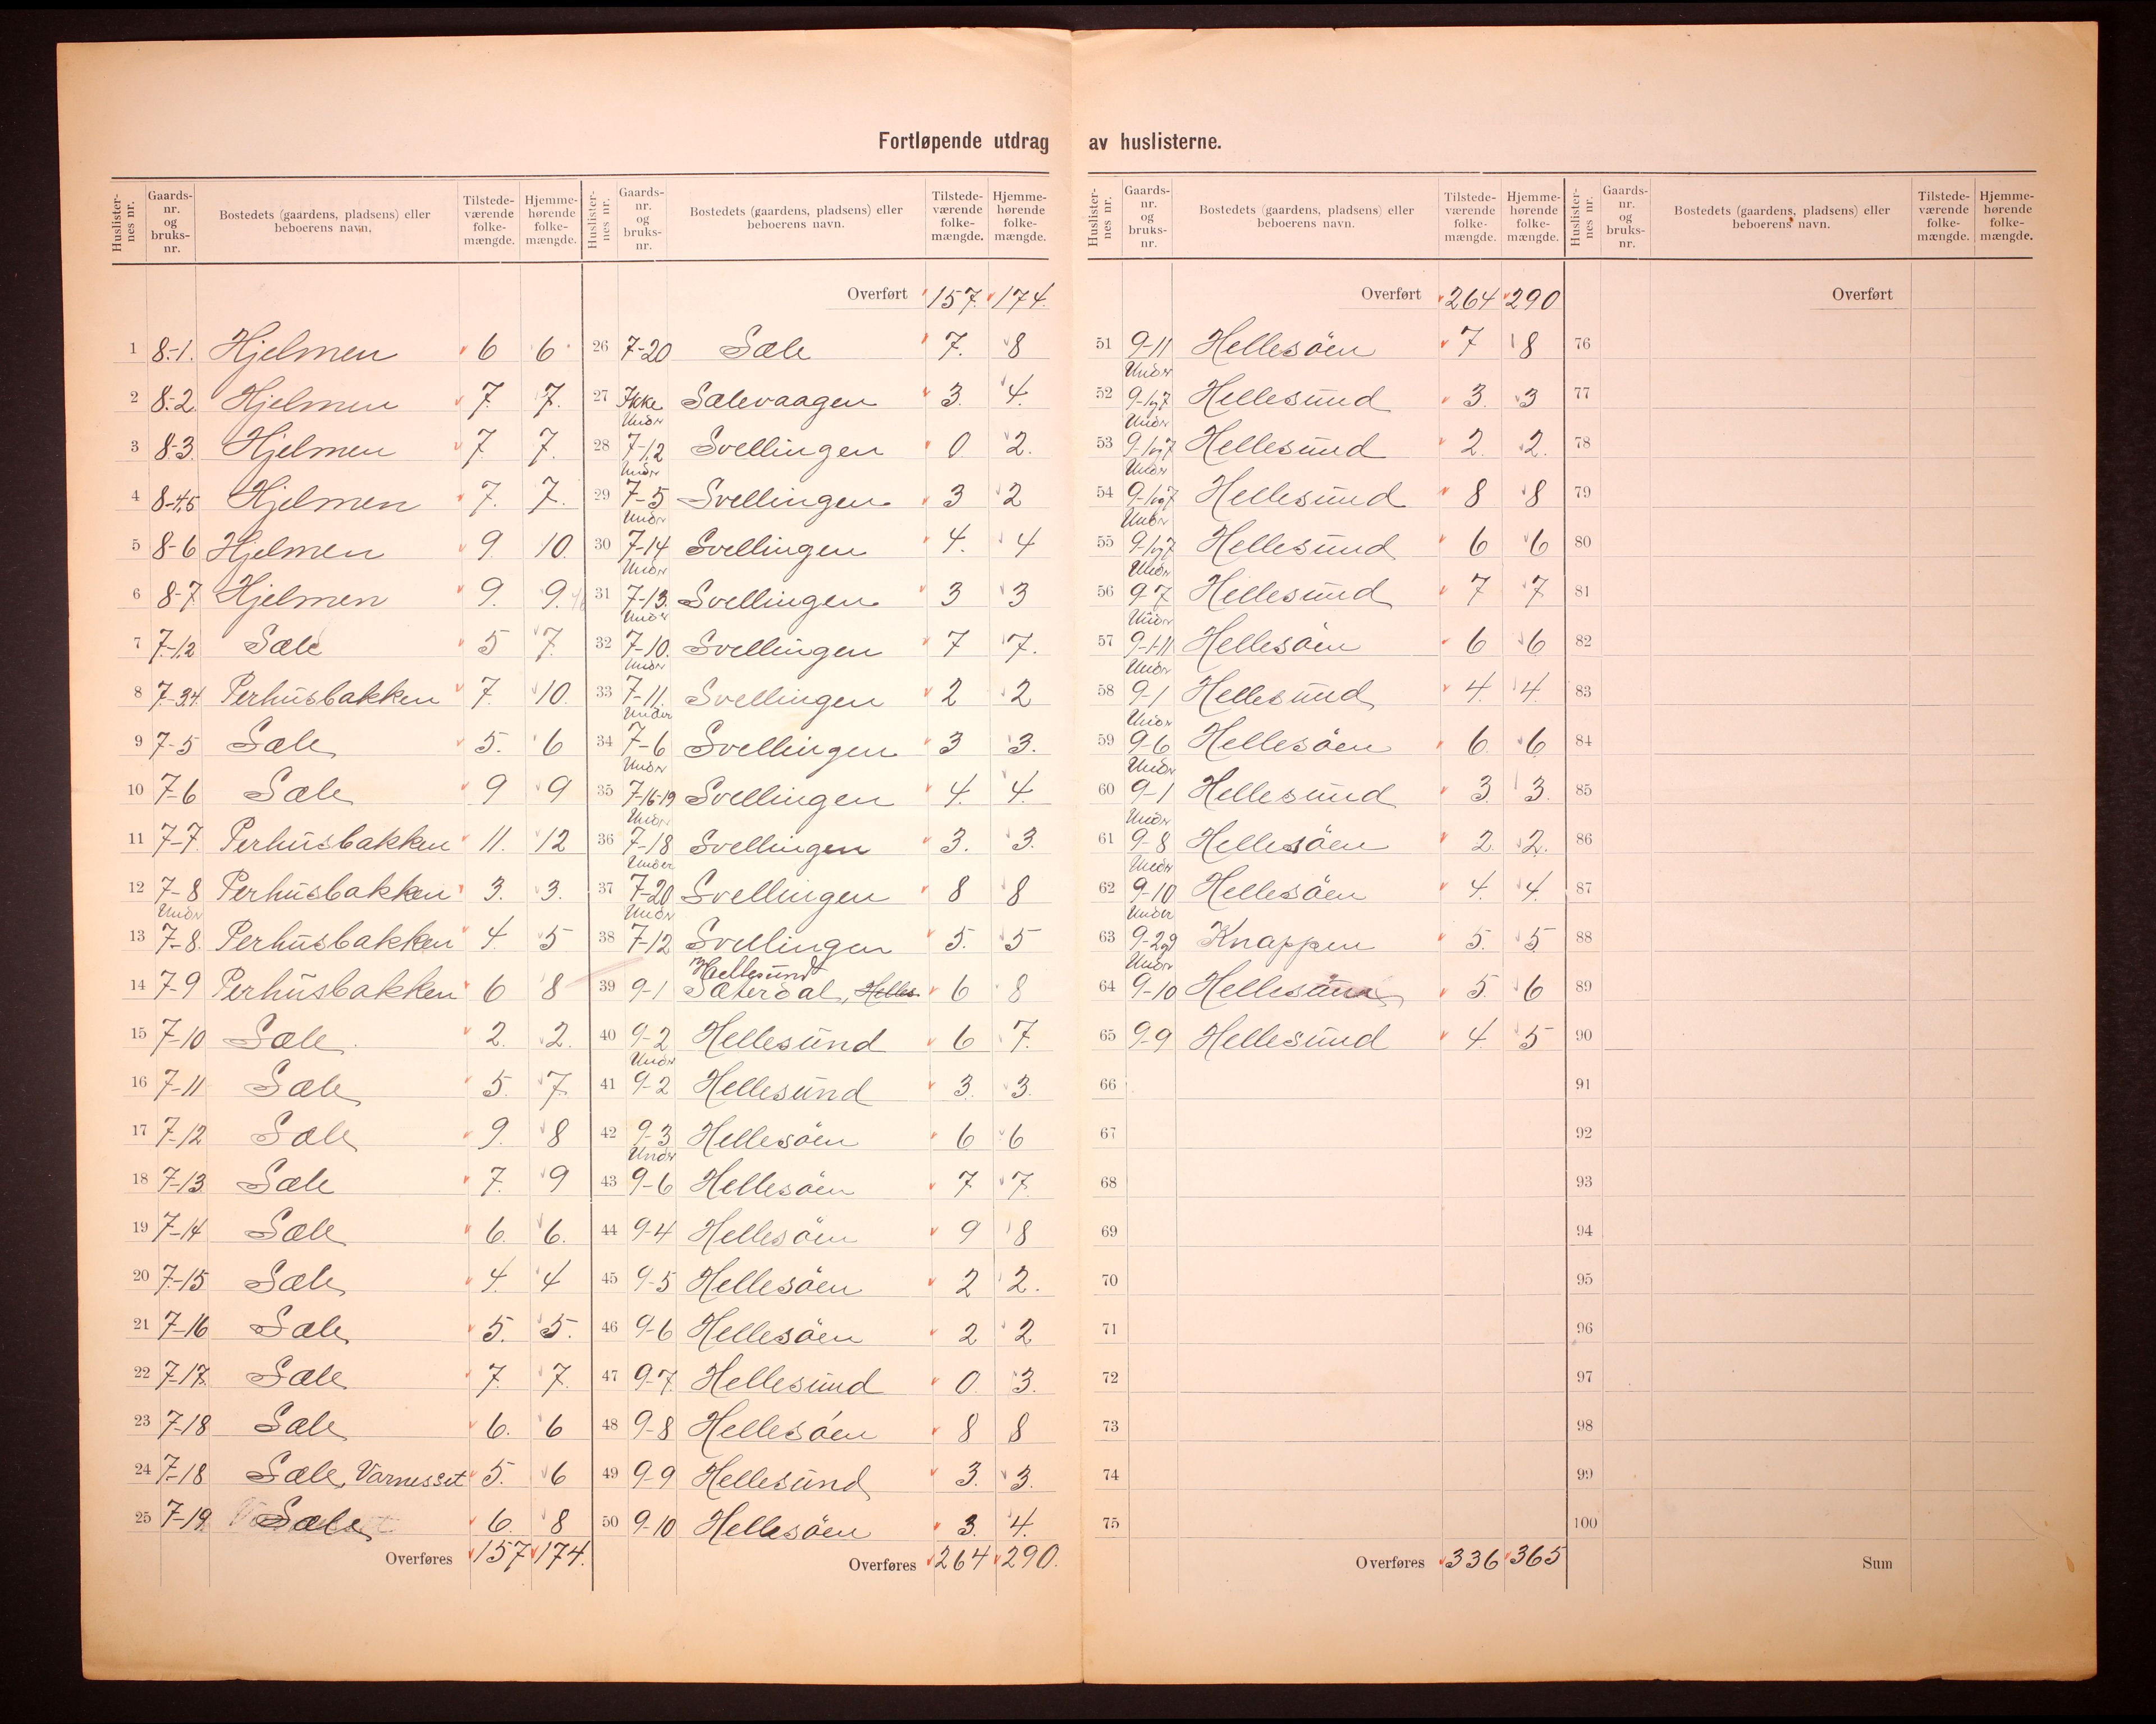 Fortløpende utdrag av huslisterne.
Huslister-nes nr. Gaards-nr. og bruks-nr. Bostedets (gaardens, pladsens) eller beboerens navn. Tilstede-værende folke-mængde. Hjemme-hørende folke-mængde.
1 8-1. Hjelmen 6 6
2 8-2. Hjelmen 7. 7.
3 8-3. Hjelmen 7 7.
4 8-4,5 Hjelmen 7. 7.
5 8-6 Hjelmen 9. 10.
6 8-7 Hjelmen 9. 9.
7 7-1,2 Sæle 5 7.
8 7-3,4. Perhusbakken 7. 10.
9 7-5 Sæle 5. 6
10 7-6 Sæle 9 9
11 7-7. Perhusbakken 11. 12
12 7-8 Perhusbakken 3. 3.
Under
13 7-8. Perhusbakken 4. 5
14 7-9 Perhusbakken 6 8
15 7-10 Sæle. 2. 2.
16 7-11 Sæle 5. 7.
17 7-12 Sæle 9. 8
18 7-13 Sæle 7. 9
19 7-14 Sæle 6. 6.
20 7-15 Sæle 4. 4
21 7-16 Sæle 5. 5.
22 7-17. Sæle 7. 7.
23 7-18 Sæle 6. 6
24 7-18 Sæle, Varnesset 5. 6
25 7-19. Sæle 6. 8
Overføres 157 174.
Huslister-nes nr. Gaards-nr. og bruks-nr. Bostedets (gaardens, pladsens) eller beboerens navn. Tilstede-værende folke-mængde. Hjemme-hørende folke-mængde.
Overført 157. 174.
26 7-20 Sæle 7. 8
27 Ikke Sælevaagen 3. 4.
Under
28 7-1,2 Svellingen 0 2.
Under
29 7-5 Svellingen 3 2
Under
30 7-14 Svellingen 4. 4
Under
31 7-13. Svellingen 3 3
Under
32 7-10. Svellingen 7 7.
Under
33 7-11. Svellingen 2 2
Under
34 7-6 Svellingen 3 3.
Under
35 7-16-19 Svellingen 4. 4.
Under
36 7-18 Svellingen 3. 3.
Under
37 7-20 Svellingen 8 8
Under
38 7-12 Svellingen 5. 5
Hellesund
39 9-1 Sæterdal, Helles 6 8
40 9-2 Hellesund 6 7.
Under
41 9-2 Hellesund 3. 3.
42 9-3 Hellesöen 6 6
Under
43 9-6 Hellesöen 7 7.
44 9-4 Hellesöen 9 8
45 9-5 Hellesöen 2 2.
46 9-6 Hellesöen 2 2
47 9-7. Hellesund 0. 3.
48 9-8 Hellesöen 8 8
49 9-9 Hellesund 3. 3.
50 9-10 Hellesöen 3. 4.
Overføres 264 290.
Huslister-nes nr. Gaards-nr. og bruks-nr. Bostedets (gaardens, pladsens) eller beboerens navn. Tilstede-værende folke-mængde. Hjemme-hørende folke-mængde.
Overført 264 290
51 9-11 Hellesöen 7 8
Under
52 9-1og7 Hellesund 3. 3
Under
53 9-1og7 Hellesund 2. 2.
Under
54 9-1og7 Hellesund 8 8
Under
55 9-1og7 Hellesund 6 6
Under
56 9-7 Hellesund 7 7
Under
57 9-1-11 Hellesöen 6 6
Under
58 9-1 Hellesund 4. 4.
Under
59 9-6 Hellesöen 6. 6
Under
60 9-1 Hellesund 3. 3.
Under
61 9-8 Hellesöen 2. 2.
Under
62 9-10 Hellesöen 4. 4.
Under
63 9-2og9 Knappen 5. 5
Under
64 9-10 5. 6
65 9-9 Hellesund 4. 5
66
67
68
69
70
71
72
73
74
75
Overføres 336 365
Huslister-nes nr. Gaards-nr. og bruks-nr. Bostedets (gaardens, pladsens) eller beboerens navn. Tilstede-værende folke-mængde. Hjemme-hørende folke-mængde.
Overført
76
77
78
79
80
81
82
83
84
85
86
87
88
89
90
91
92
93
94
95
96
97
98
99
100
Sum